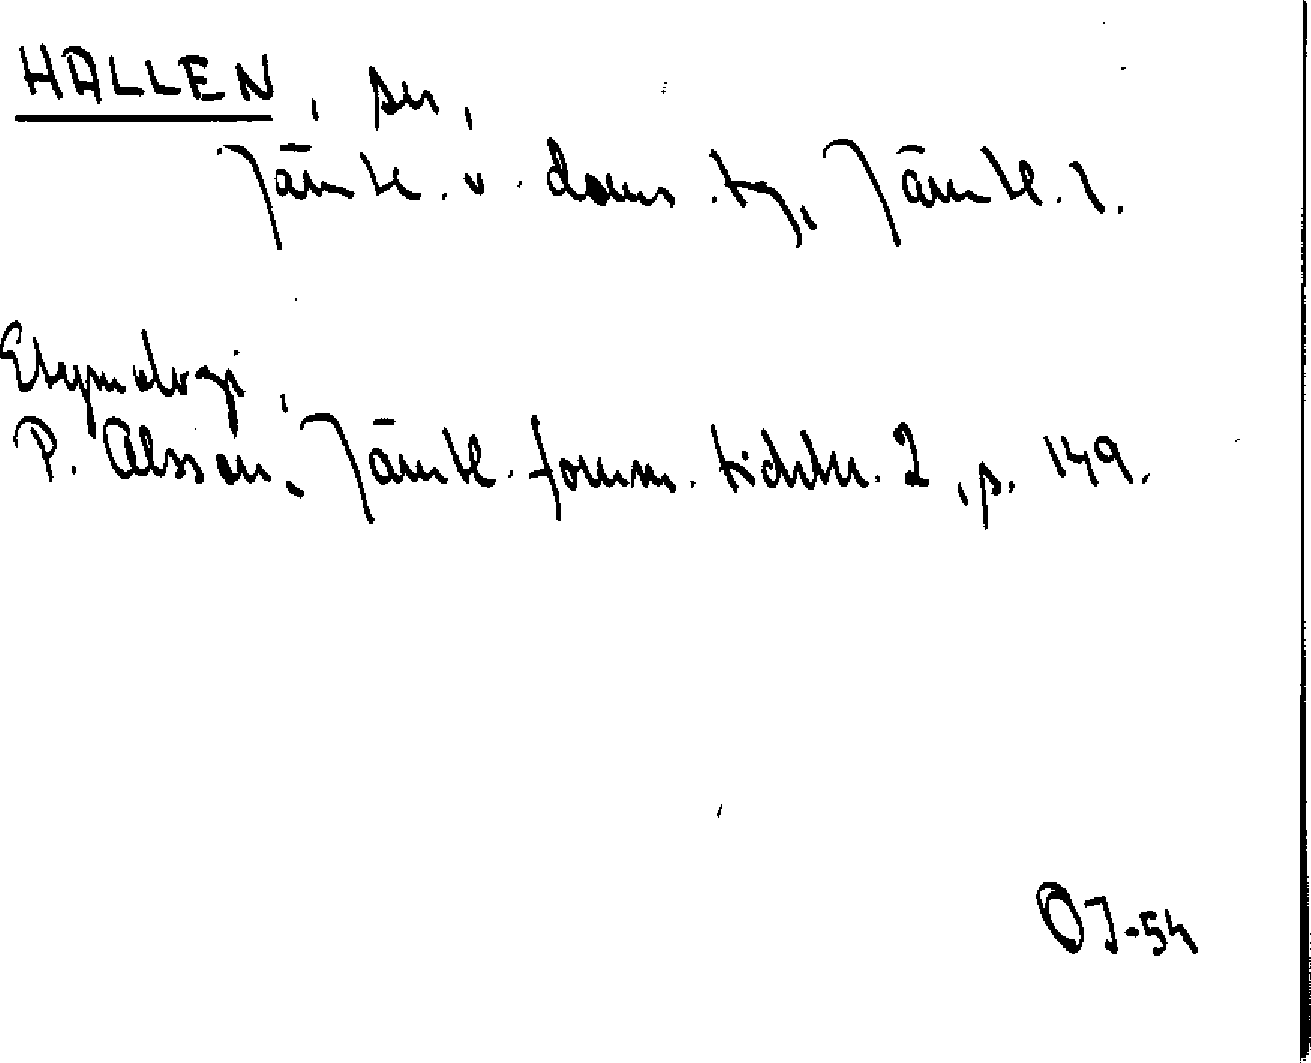 HALLEN, sn,
Jämtl. v. doms. tg, Jämtl. l.
Etymologi,
P. Olsson, Jämtl. fornm. tidskr. 2, p. 149.
OJ-54